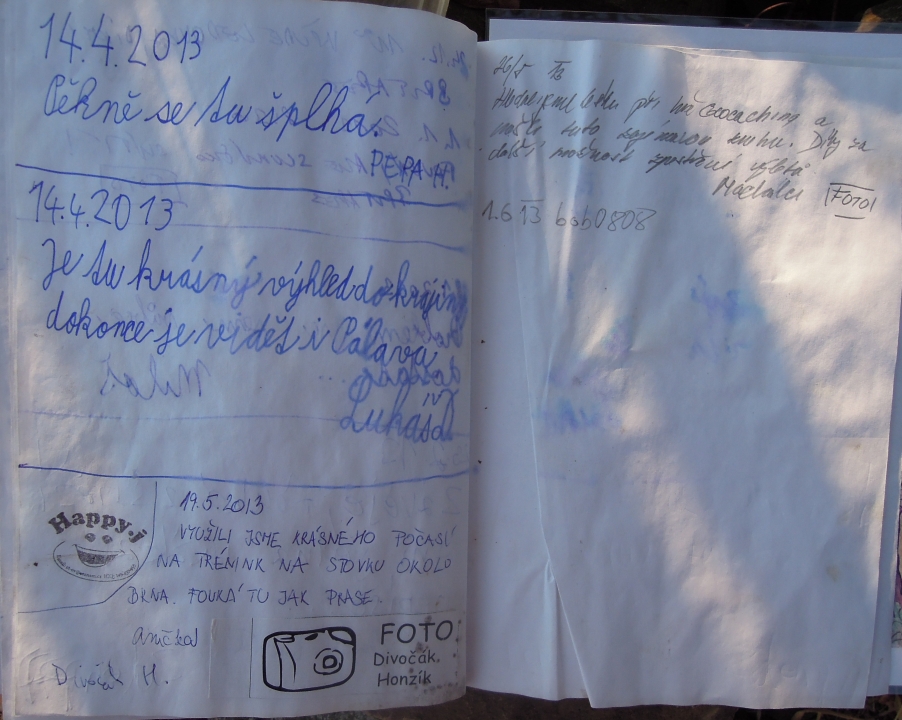 14.4.2013
Pěkně se tu šplhá.
PEPA H.
14.4.2013
Je tu krásný výhled do krajiny
dokonce je vidět i Pálava
Lukáš
Happy.j
19.5.2013
VYUŽILI JSME KRÁSNÉHO POČASÍ
NA TRÉNINK NA STOVKU OKOLO
BRNA. FOUKÁ TU JAK PRASE.
anička
Divočák H.
FOTO
Divočák.
Honzík
26/5 13
při hře Geocaching a
našli tuto knihu. Díky za
další možnost výletů
FOTO!
1.6 13 bob0808